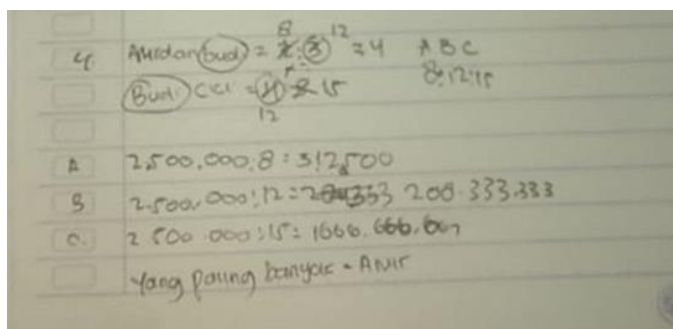 8 12
4 Amir dan Budi = 2:3 = 4 A B C
Budi CCI = 4 : 5 15 8:12:15
12
A 2,500.000:8 = 312,500
B 2.500.000:12 = 208.333.333
C. 2 500.000:15 = 1666.666.667
Yang paling banyak = Amir